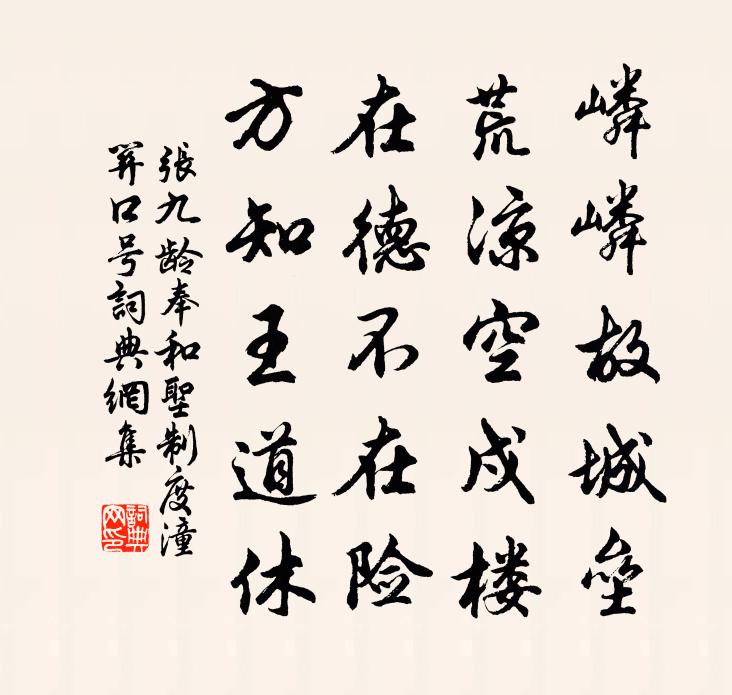 嶙嶙故城垒
荒凉空戍楼
在德不在险
方知王道休
張九龄奉和聖制度潼
関口号詞典網集
詞典
网印